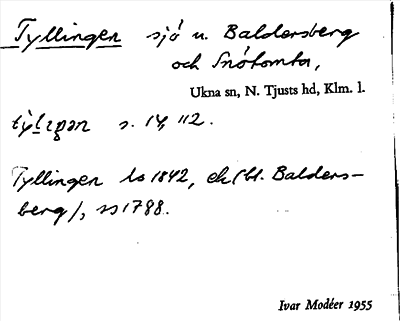 Tyllingen sjö n. Baldersberg
och Snötomta,
Ukna sn, N. Tjusts hd, Klm. l.
s. 14, 112.
Tyllingen ls 1842, ek (bl. Balders-
berg), ss 1788.
Ivar Modéer 1955